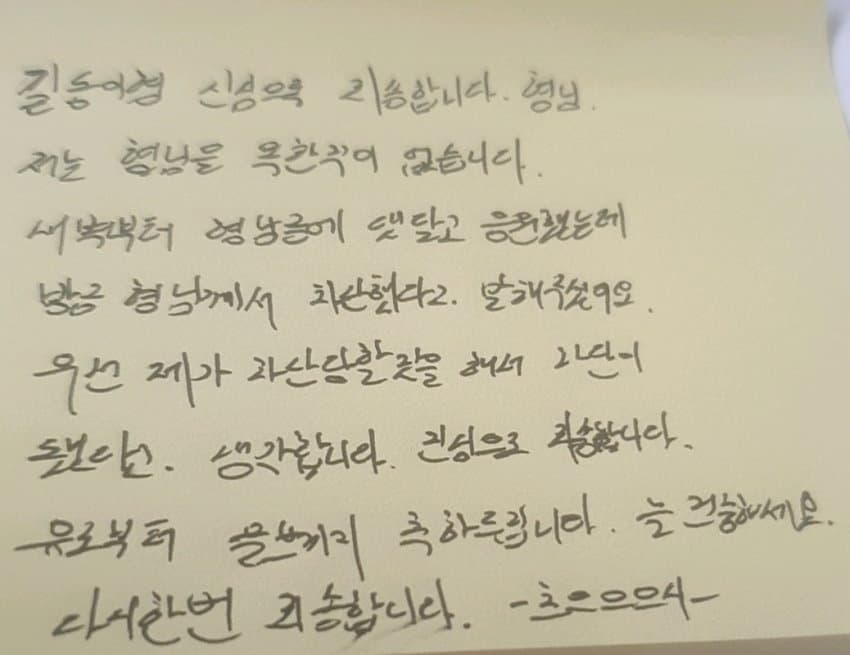 길동이형 진심으로 죄송합니다. 형님.
저는 형님을 욕한적이 없습니다.
새벽부터 형님글에 댓달고 응원했는데
방금 형님께서 차단했다고. 말해주셨어요.
우선 제가 차단당할짓을 해서 차단이
됐다고. 생각합니다. 진심으로 죄송합니다.
유로부터 축하드립니다. 늘 건강하세요.
다시한번 죄송합니다. -초으으으사-